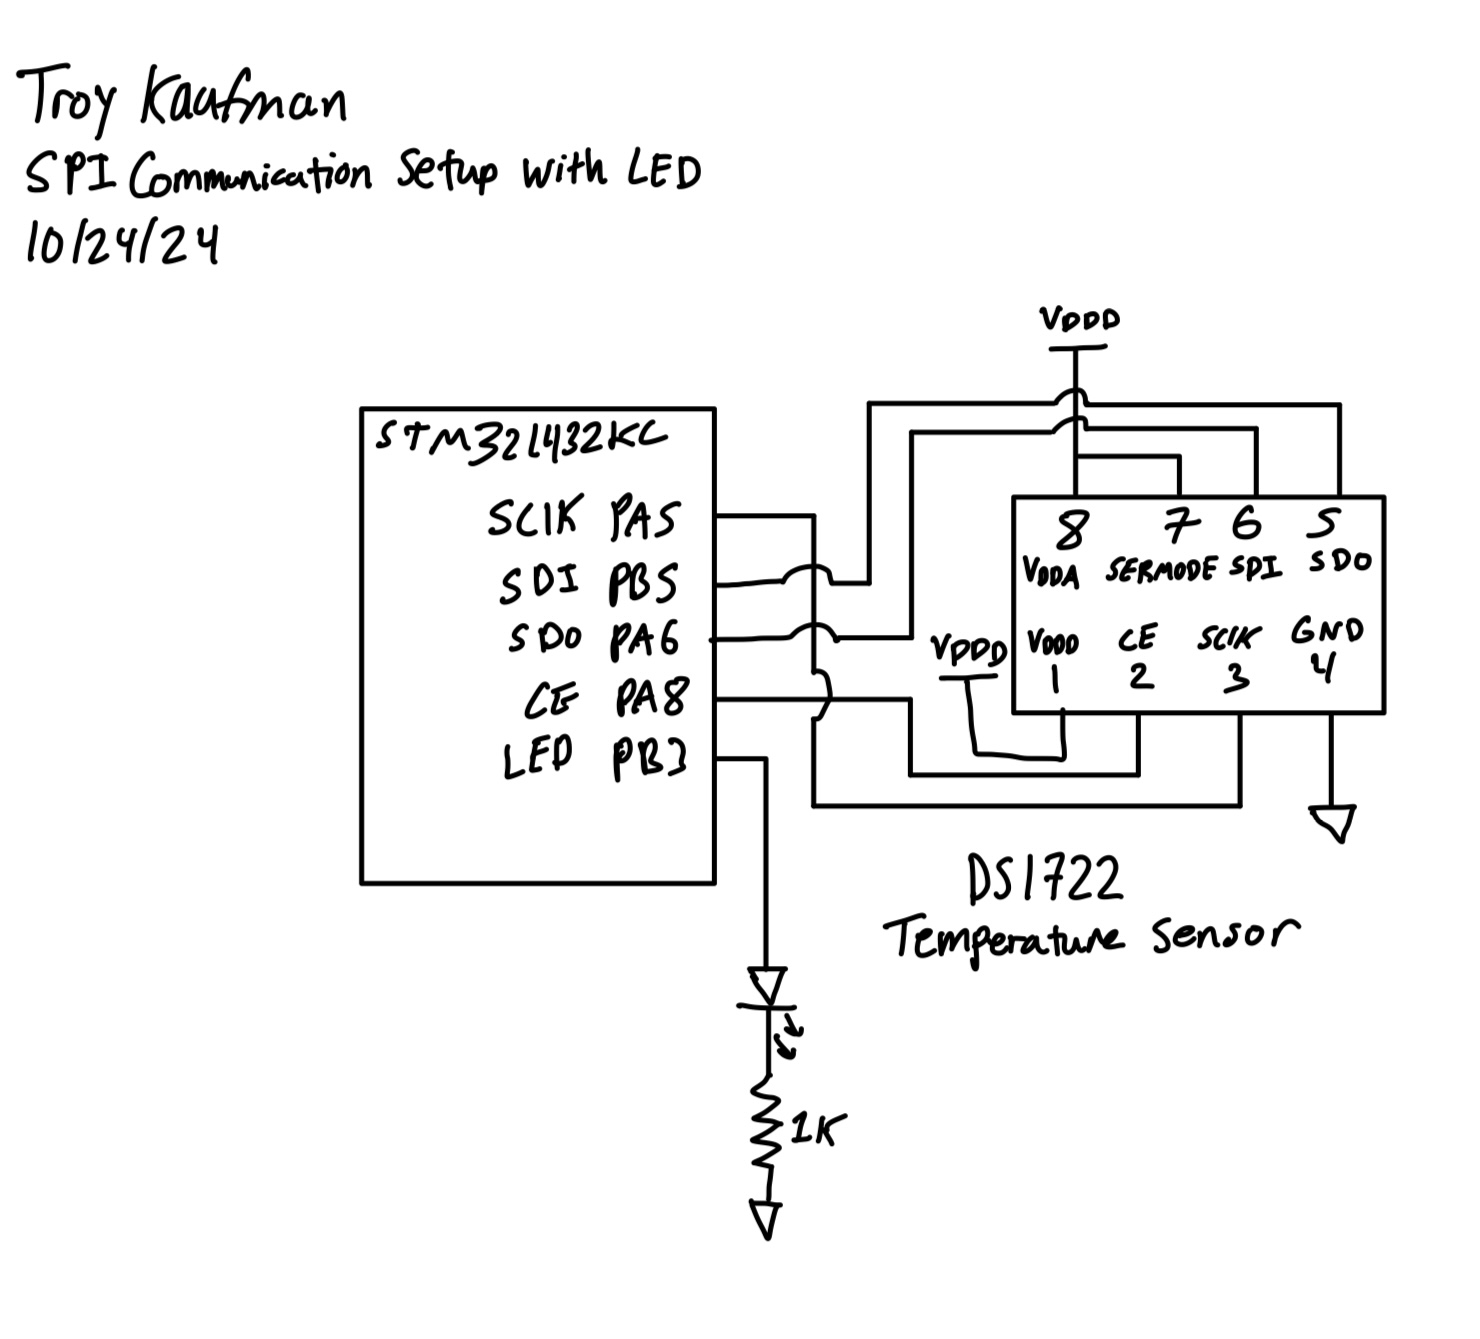 Troy Kaufman
SPI Communication Setup with LED
10/24/24
VDDD
STM32L432KC
SCLK PA5
SDI PB5
SDO PA6
CE PA8
LED PB3
8 7 6 5
VDDA SERMODE SPI SDO
VDDD
VDDD CE SCLK GND
1 2 3 4
DS1722
Temperature Sensor
1K